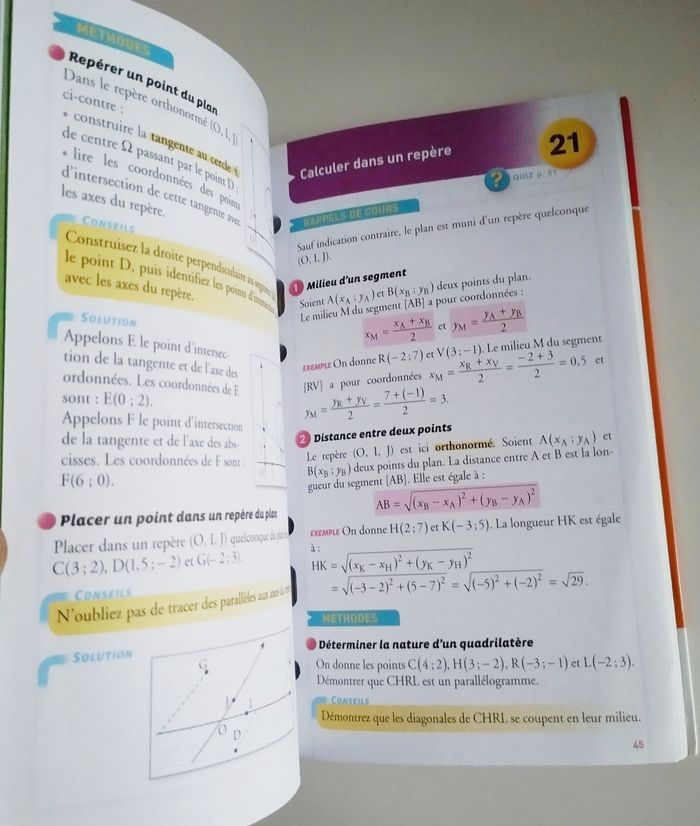 MÉTHODES
Repérer un point du plan
Dans le repère orthonormé (O, I, J)
ci-contre :
• construire la tangente au cercle
de centre Ω passant par le point D ;
• lire les coordonnées des points
d'intersection de cette tangente avec
les axes du repère.
CONSEILS
Construisez la droite perpendiculaire au segment
le point D, puis identifiez les points d'intersection
avec les axes du repère.
SOLUTION
Appelons E le point d'intersec-
tion de la tangente et de l'axe des
ordonnées. Les coordonnées de E
sont : E(0 ; 2).
Appelons F le point d'intersection
de la tangente et de l'axe des abs-
cisses. Les coordonnées de F sont :
F(6 ; 0).
Placer un point dans un repère du plan
Placer dans un repère (O, I, J) quelconque du
C(3 ; 2), D(1,5 ; −2) et G(−2 ; 3).
CONSEILS
N'oubliez pas de tracer des parallèles aux axes du
SOLUTION
G
J
I
O
D
Calculer dans un repère
21
? QUIZ P. 51
RAPPELS DE COURS
Sauf indication contraire, le plan est muni d'un repère quelconque
(O, I, J).
1 Milieu d'un segment
Soient A(xA ; yA) et B(xB ; yB) deux points du plan.
Le milieu M du segment [AB] a pour coordonnées :
xM = (xA + xB)/2 et yM = (yA + yB)/2
EXEMPLE On donne R(−2 ; 7) et V(3 ; −1). Le milieu M du segment
[RV] a pour coordonnées xM = (xR + xV)/2 = (−2 + 3)/2 = 0,5 et
yM = (yR + yV)/2 = (7 + (−1))/2 = 3.
2 Distance entre deux points
Le repère (O, I, J) est ici orthonormé. Soient A(xA ; yA) et
B(xB ; yB) deux points du plan. La distance entre A et B est la lon-
gueur du segment [AB]. Elle est égale à :
AB = √((xB − xA)² + (yB − yA)²)
EXEMPLE On donne H(2 ; 7) et K(−3 ; 5). La longueur HK est égale
à :
HK = √((xK − xH)² + (yK − yH)²)
= √((−3 − 2)² + (5 − 7)²) = √((−5)² + (−2)²) = √29.
MÉTHODES
Déterminer la nature d'un quadrilatère
On donne les points C(4 ; 2), H(3 ; −2), R(−3 ; −1) et L(−2 ; 3).
Démontrer que CHRL est un parallélogramme.
CONSEILS
Démontrez que les diagonales de CHRL se coupent en leur milieu.
45